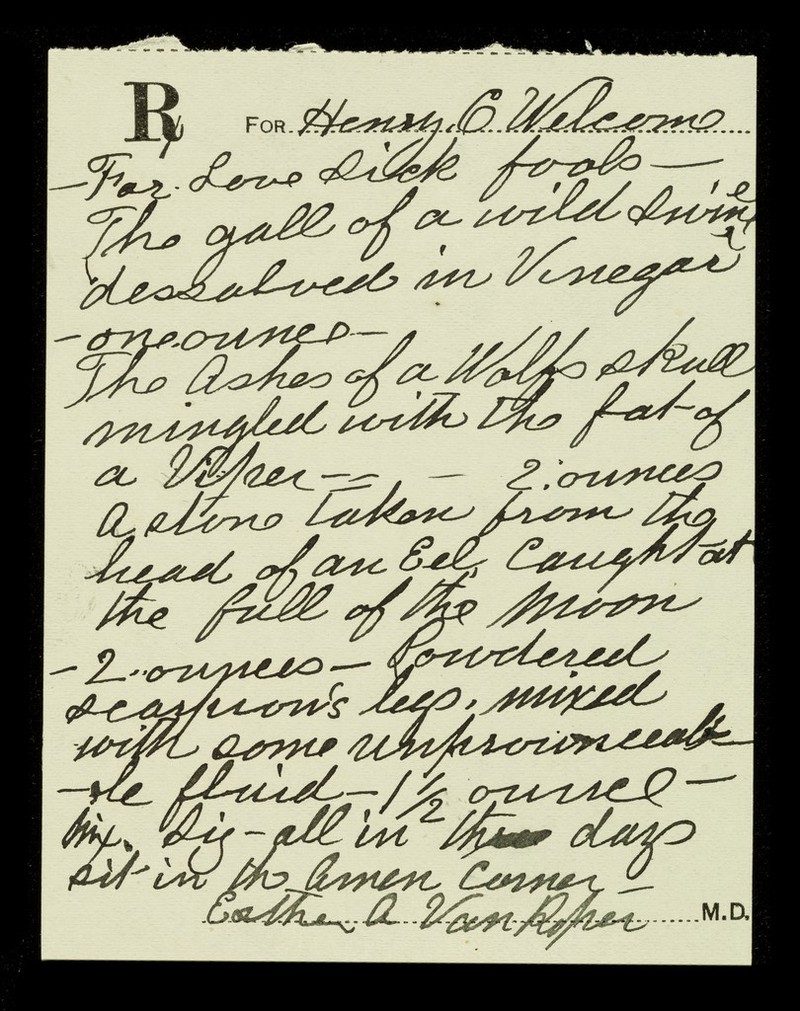 ℞ FOR Henry C Welcome
— For Love Sick fools —
The gall of a wild Swine
dessolved in Vinegar
— one ounce —
The Ashes of a Wolfs skull
mingled with the fat of
a Viper — — — 2 ounces
A stone taken from the
head of an Eel, Caught at
the full of the Moon
— 2 ounces — Powdered
scorpion's legs, mixed
with some unprounceab
-le fluid — 1 1/2 ounce —
Mix. Sig — all in days
sit in th Amen Corner
Esther A Van M.D.